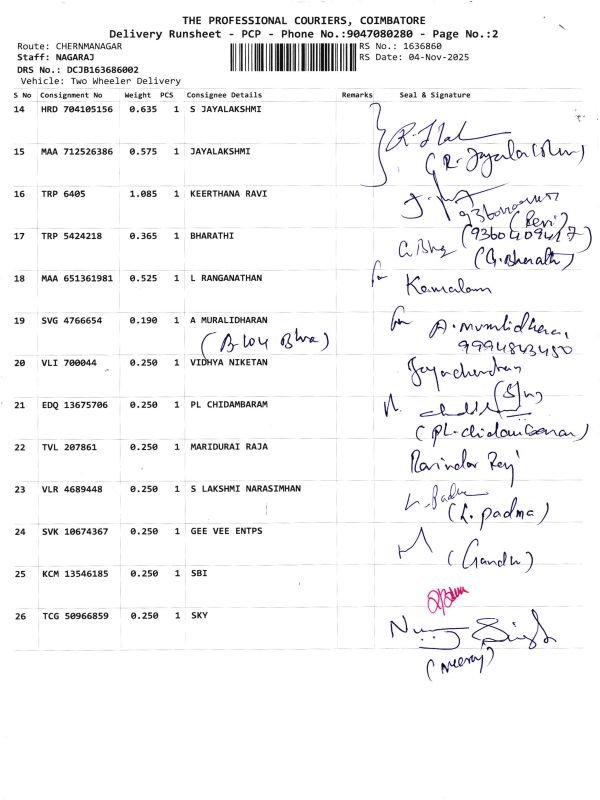 THE PROFESSIONAL COURIERS, COIMBATORE
Delivery Runsheet - PCP - Phone No.:9047080280 - Page No.:2
Route: CHERNMANAGAR RS No.: 1636860
Staff: NAGARAJ RS Date: 04-Nov-2025
DRS No.: DCJB163686002
Vehicle: Two Wheeler Delivery
S No Consignment No Weight PCS Consignee Details Remarks Seal & Signature
14 HRD 704105156 0.635 1 S JAYALAKSHMI
15 MAA 712526386 0.575 1 JAYALAKSHMI
16 TRP 6405 1.085 1 KEERTHANA RAVI
(Revi)
17 TRP 5424218 0.365 1 BHARATHI (9360409417)
(G.Bharath)
18 MAA 651361981 0.525 1 L RANGANATHAN for Kamalam
19 SVG 4766654 0.190 1 A MURALIDHARAN for
(B-104 9994843450
20 VLI 700044 0.250 1 VIDHYA NIKETAN Jayachandran
21 EDQ 13675706 0.250 1 PL CHIDAMBARAM
22 TVL 207861 0.250 1 MARIDURAI RAJA
23 VLR 4689448 0.250 1 S LAKSHMI NARASIMHAN
(L. padma)
24 SVK 10674367 0.250 1 GEE VEE ENTPS
25 KCM 13546185 0.250 1 SBI
26 TCG 50966859 0.250 1 SKY Singh
(Neeraj)